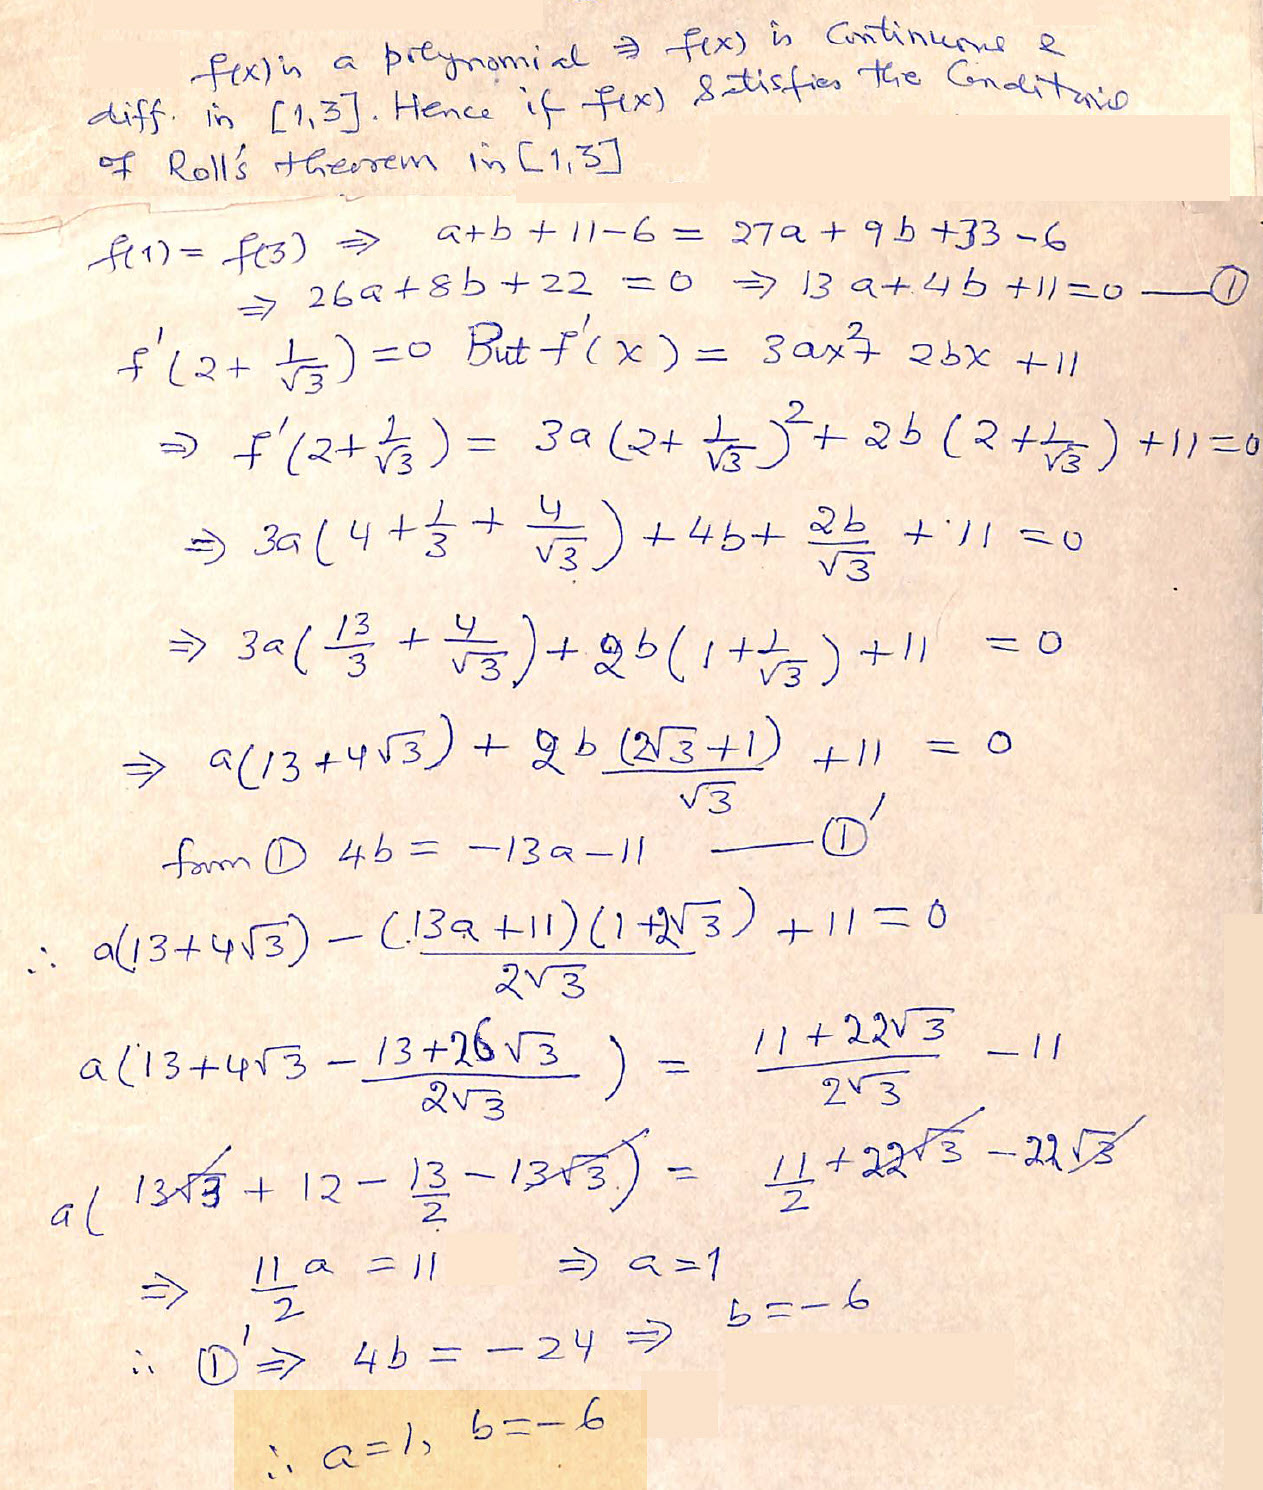 f(x) is a polynomial ⇒ f(x) is Continuous &
diff. in [1,3]. Hence if f(x) Satisfies the Conditions
of Roll's theorem in [1,3]
f(1) = f(3) ⇒ a+b+11-6 = 27a+9b+33-6
⇒ 26a+8b+22 = 0 ⇒ 13a+4b+11=0 — ①
f'(2+1/√3)=0 But f'(x) = 3ax²+2bx+11
⇒ f'(2+1/√3) = 3a(2+1/√3)²+2b(2+1/√3)+11=0
⇒ 3a(4+1/3+4/√3)+4b+2b/√3+11=0
⇒ 3a(13/3+4/√3)+2b(1+1/√3)+11 = 0
⇒ a(13+4√3)+2b(2√3+1)/√3+11 = 0
form ① 4b = -13a-11 — ①'
∴ a(13+4√3)-(13a+11)(1+2√3)/2√3+11=0
a(13+4√3-13+26√3/2√3) = 11+22√3/2√3-11
a(13√3+12-13/2-13√3) = 11/2+22√3-22√3
⇒ 11/2 a = 11 ⇒ a=1
∴ ①' ⇒ 4b = -24 ⇒ b=-6
∴ a=1, b=-6